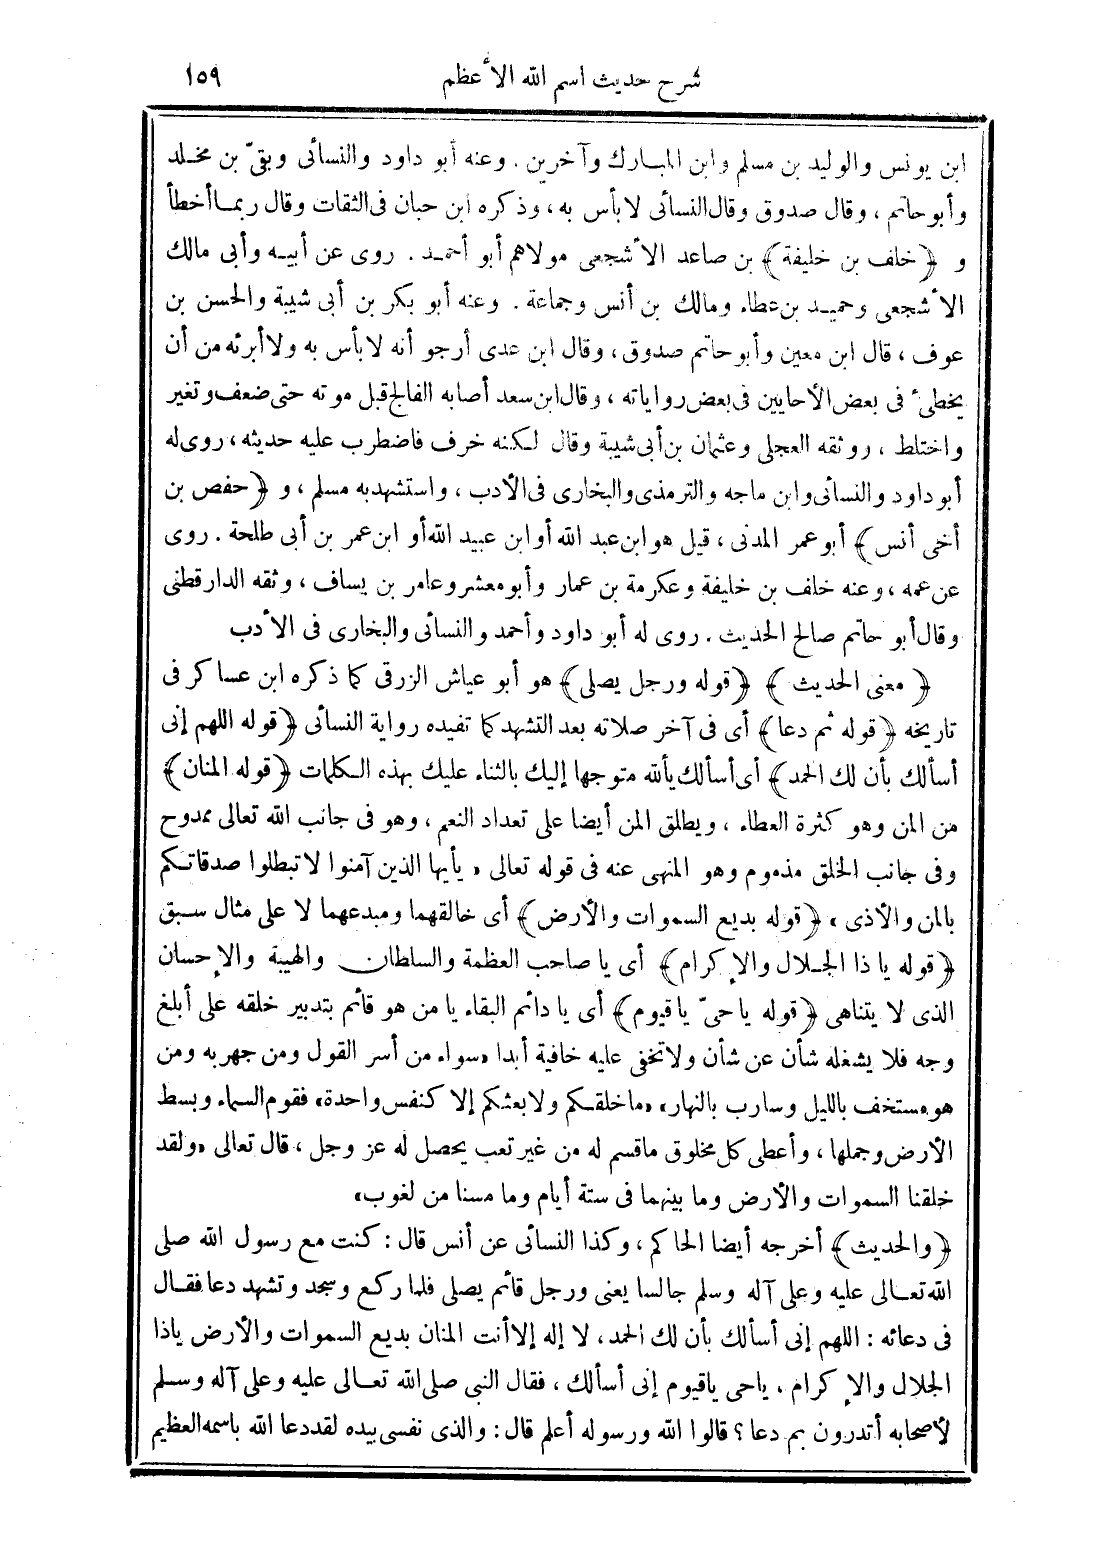 شرح حديث اسم الله الأعظم ١٥٩
ابن يونس والوليد بن مسلم وابن المبارك وآخرين . وعنه أبو داود والنسائى وبقىّ بن مخلد
وأبو حاتم ، وقال صدوق وقال النسائى لا بأس به ، وذكره ابن حبان فى الثقات وقال ربما أخطأ
و ﴿خلف بن خليفة﴾ بن صاعد الأشجعى مولاهم أبو أحمد . روى عن أبيه وأبى مالك
الأشجعى وحميد بن عطاء ومالك بن أنس وجماعة . وعنه أبو بكر بن أبى شيبة والحسن بن
عوف ، قال ابن معين وأبو حاتم صدوق ، وقال ابن عدى أرجو أنه لا بأس به ولا أبرئه من أن
يخطىء فى بعض الأحايين فى بعض رواياته ، وقال ابن سعد أصابه الفالج قبل موته حتى ضعف وتغير
واختلط ، ووثقه العجلى وعثمان بن أبى شيبة وقال لكنه خرف فاضطرب عليه حديثه ، روى له
أبو داود والنسائى وابن ماجه والترمذى والبخارى فى الأدب ، واستشهد به مسلم ، و ﴿حفص بن
أخى أنس﴾ أبو عمر المدنى ، قيل هو ابن عبد الله أو ابن عبيد الله أو ابن عمر بن أبى طلحة . روى
عن عمه ، وعنه خلف بن خليفة وعكرمة بن عمار وأبو معشر وعامر بن يساف ، وثقه الدارقطنى
وقال أبو حاتم صالح الحديث . روى له أبو داود وأحمد والنسائى والبخارى فى الأدب
﴿معنى الحديث﴾ ﴿قوله ورجل يصلى﴾ هو أبو عياش الزرقى كما ذكره ابن عساكر فى
تاريخه ﴿قوله ثم دعا﴾ أى فى آخر صلاته بعد التشهد كما تفيده رواية النسائى ﴿قوله اللهم إنى
أسألك بأن لك الحمد﴾ أى أسألك يألله متوجها إليك بالثناء عليك بهذه الكلمات ﴿قوله المنان﴾
من المن وهو كثرة العطاء ، ويطلق المن أيضا على تعداد النعم ، وهو فى جانب الله تعالى ممدوح
وفى جانب الخلق مذموم وهو المنهى عنه فى قوله تعالى « يأيها الذين آمنوا لا تبطلوا صدقاتكم
بالمن والأذى » ﴿قوله بديع السموات والأرض﴾ أى خالقهما ومبدعهما لا على مثال سبق
﴿قوله يا ذا الجلال والإكرام﴾ أى يا صاحب العظمة والسلطان والهيبة والإحسان
الذى لا يتناهى ﴿قوله يا حىّ يا قيوم﴾ أى يا دائم البقاء يا من هو قائم بتدبير خلقه على أبلغ
وجه فلا يشغله شأن عن شأن ولا تخفى عليه خافية أبدا «سواء من أسر القول ومن جهر به ومن
هو مستخف بالليل وسارب بالنهار» «ما خلقكم ولا بعثكم إلا كنفس واحدة» فقوم السماء وبسط
الأرض وجملها ، وأعطى كل مخلوق ما قسم له من غير تعب يحصل له عز وجل ، قال تعالى «ولقد
خلقنا السموات والأرض وما بينهما فى ستة أيام وما مسنا من لغوب»
﴿والحديث﴾ أخرجه أيضا الحاكم ، وكذا النسائى عن أنس قال : كنت مع رسول الله صلى
الله تعالى عليه وعلى آله وسلم جالسا يعنى ورجل قائم يصلى فلما ركع وسجد وتشهد دعا فقال
فى دعائه : اللهم إنى أسألك بأن لك الحمد ، لا إله إلا أنت المنان بديع السموات والأرض ياذا
الجلال والإكرام ، ياحى ياقيوم إنى أسألك ، فقال النبى صلى الله تعالى عليه وعلى آله وسلم
لأصحابه أتدرون بم دعا ؟ قالوا الله ورسوله أعلم قال : والذى نفسى بيده لقد دعا الله باسمه العظيم